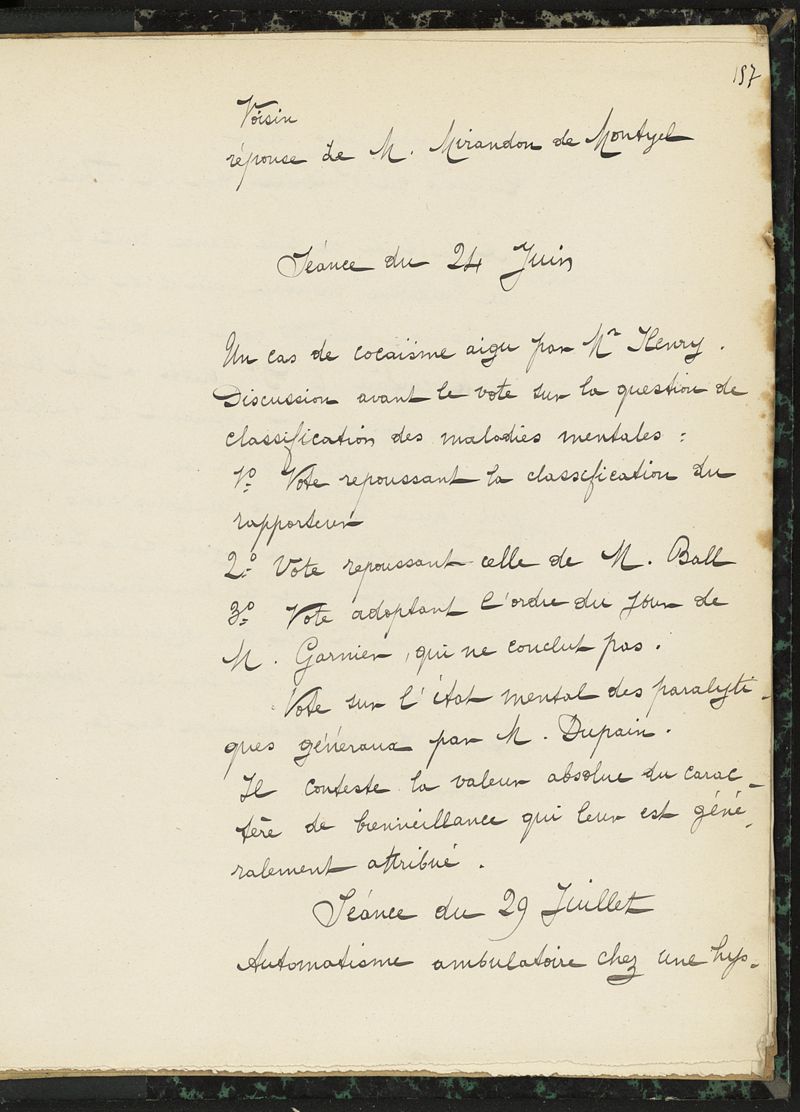 157
Voisin
réponse de M. Mirandon de Montyel
Séance du 24 Juin
Un cas de cocaïsme aigu par Mr Henry.
Discussion avant le vote sur la question de
classification des maladies mentales :
1o Vote repoussant la classification du
rapporteur
2o Vote repoussant celle de M. Ball
3o Vote adoptant l'ordre du jour de
M. Garnier, qui ne conclut pas.
Vote sur l'état mental des paralyti-
ques généraux par M. Dupain.
Il conteste la valeur absolue du carac-
tère de bienveillance qui leur est géné-
ralement attribué.
Séance du 29 Juillet
Automatisme ambulatoire chez une hys-